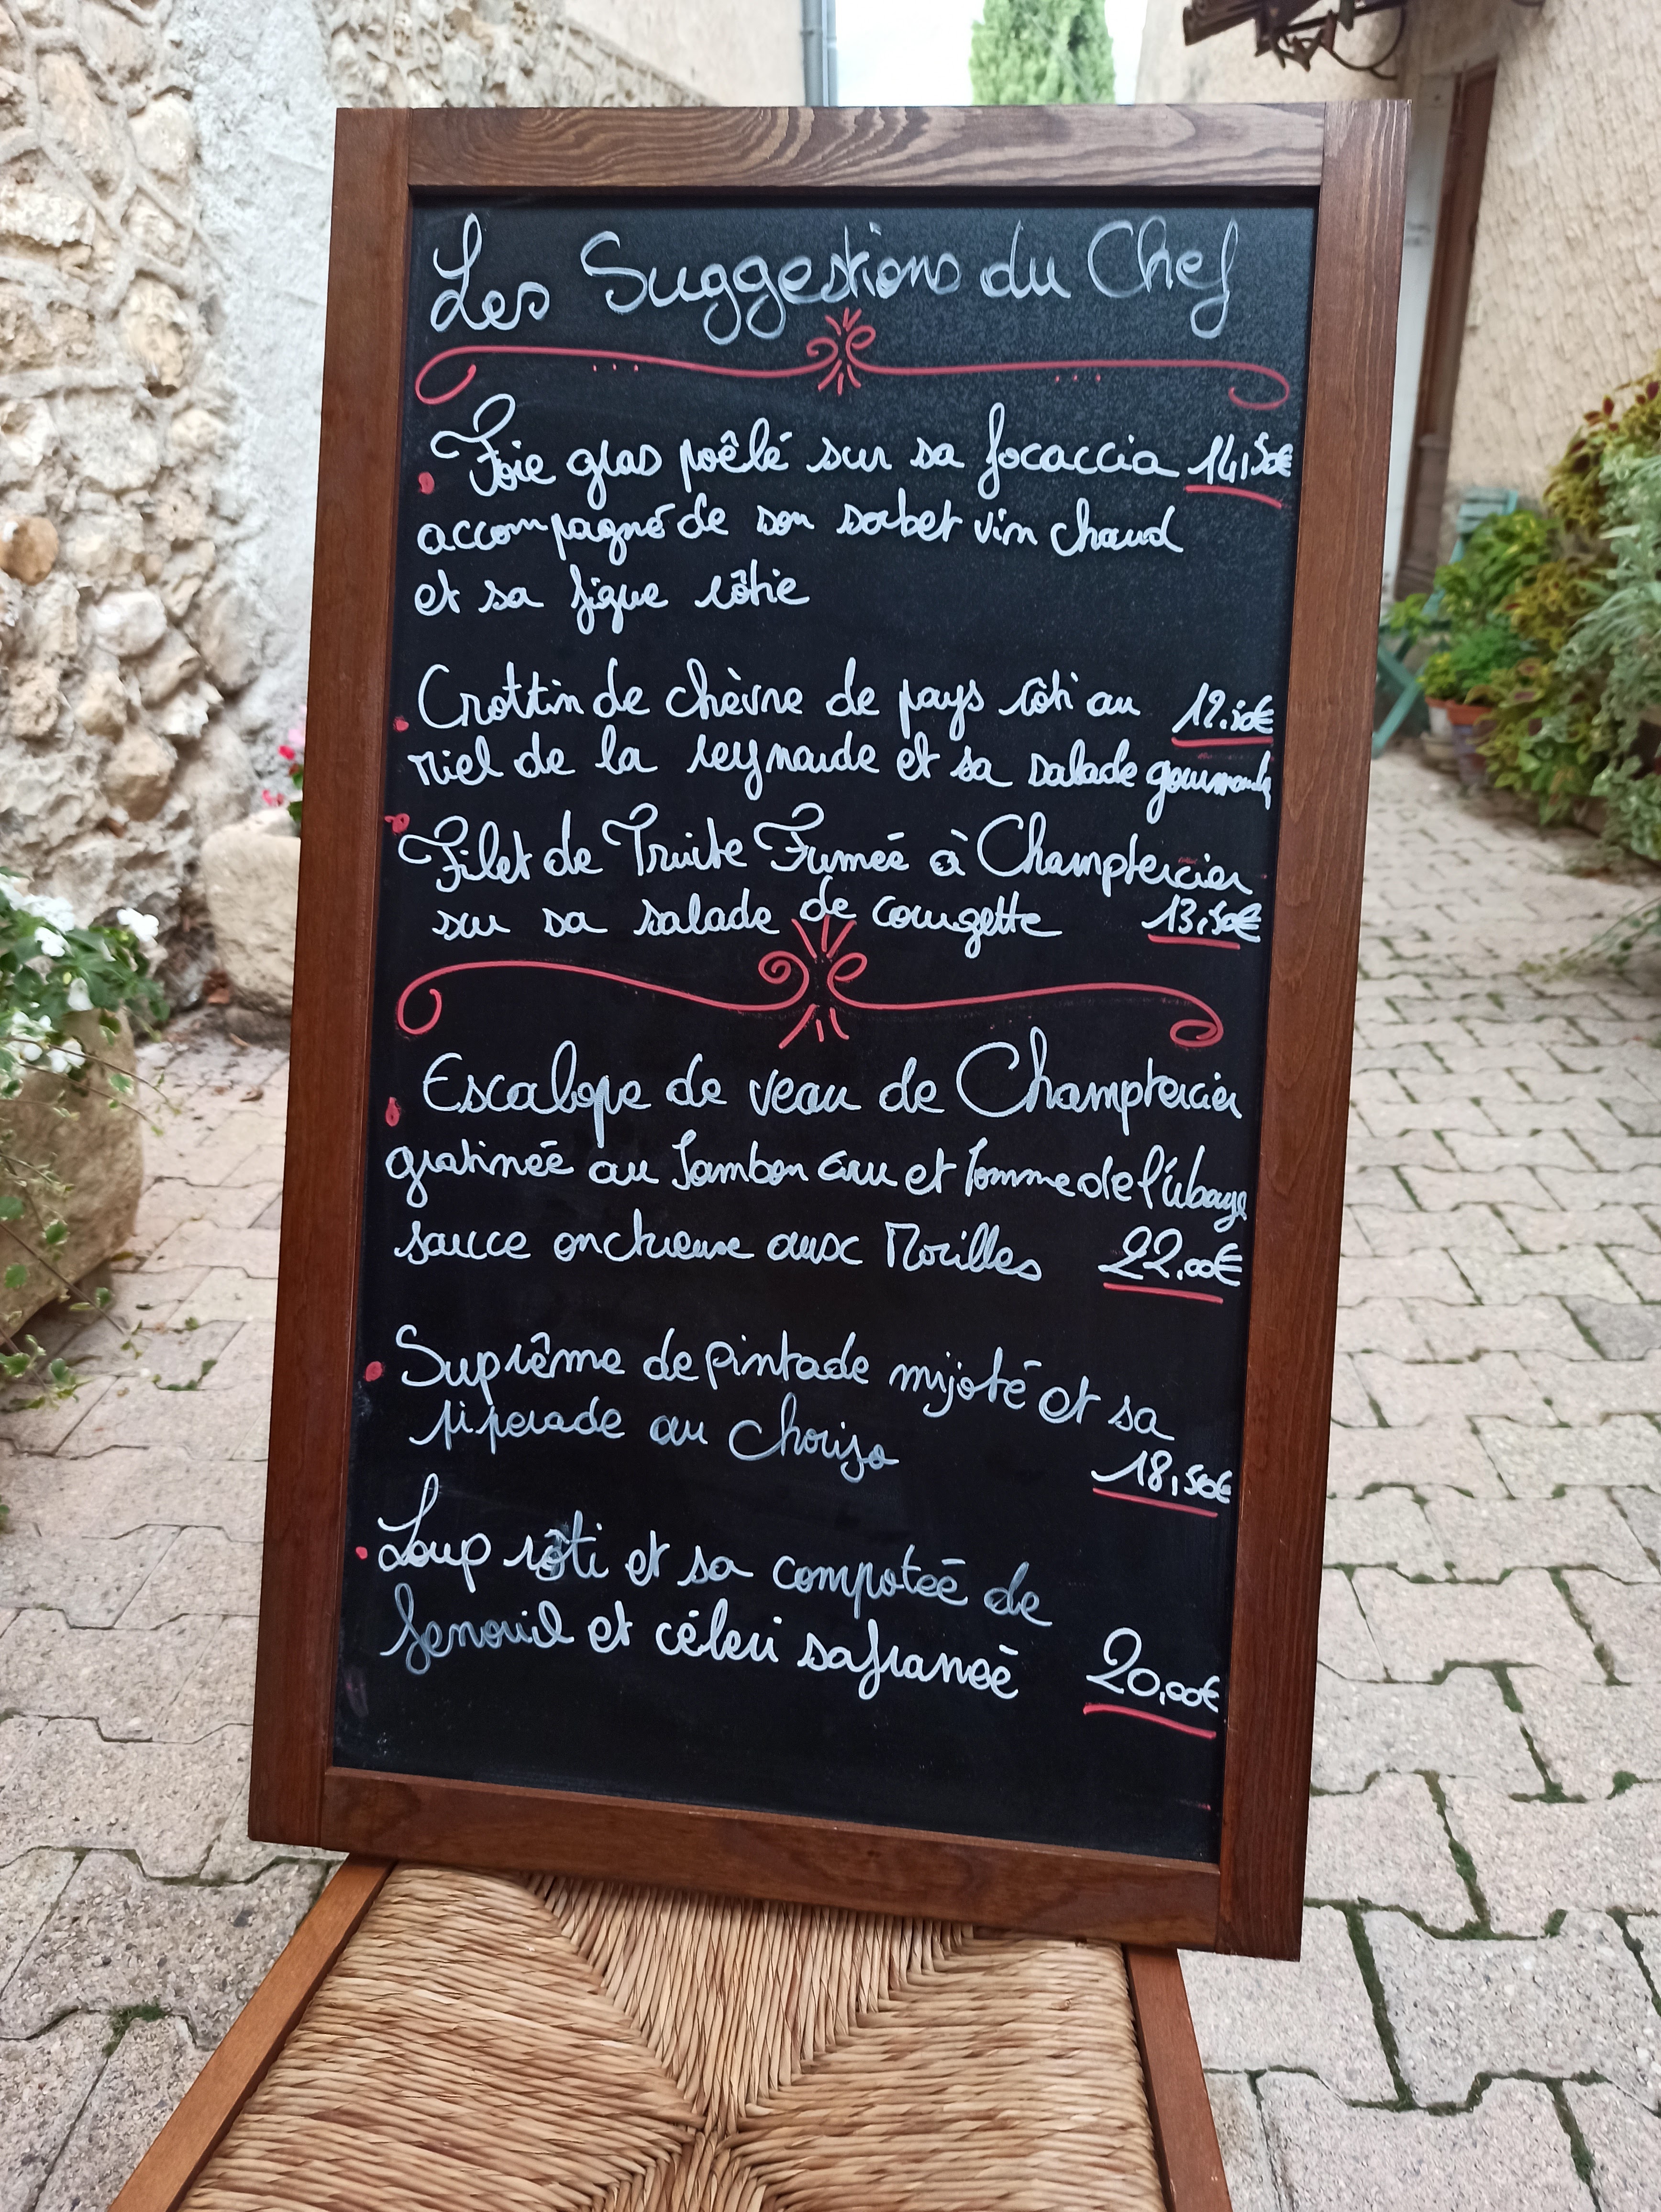 Les Suggestions du Chef
Foie gras poêlé sur sa focaccia 14,50€
accompagné de son sorbet vin chaud
et sa figue rôtie
Crottin de chèvre de pays rôti au 12.50€
miel de la reynaude et sa salade gourmande
Filet de Truite Fumée à Champtercier
sur sa salade de courgette 13,50€
Escalope de veau de Champtercier
gratinée au Jambon Cru et Tomme de l'Ubaye
sauce onctueuse aux Morilles 22,00€
Suprême de pintade mijoté et sa
piperade au Chorizo
18,50€
Loup rôti et sa compoteé de
fenouil et céleri safraneé 20,00€